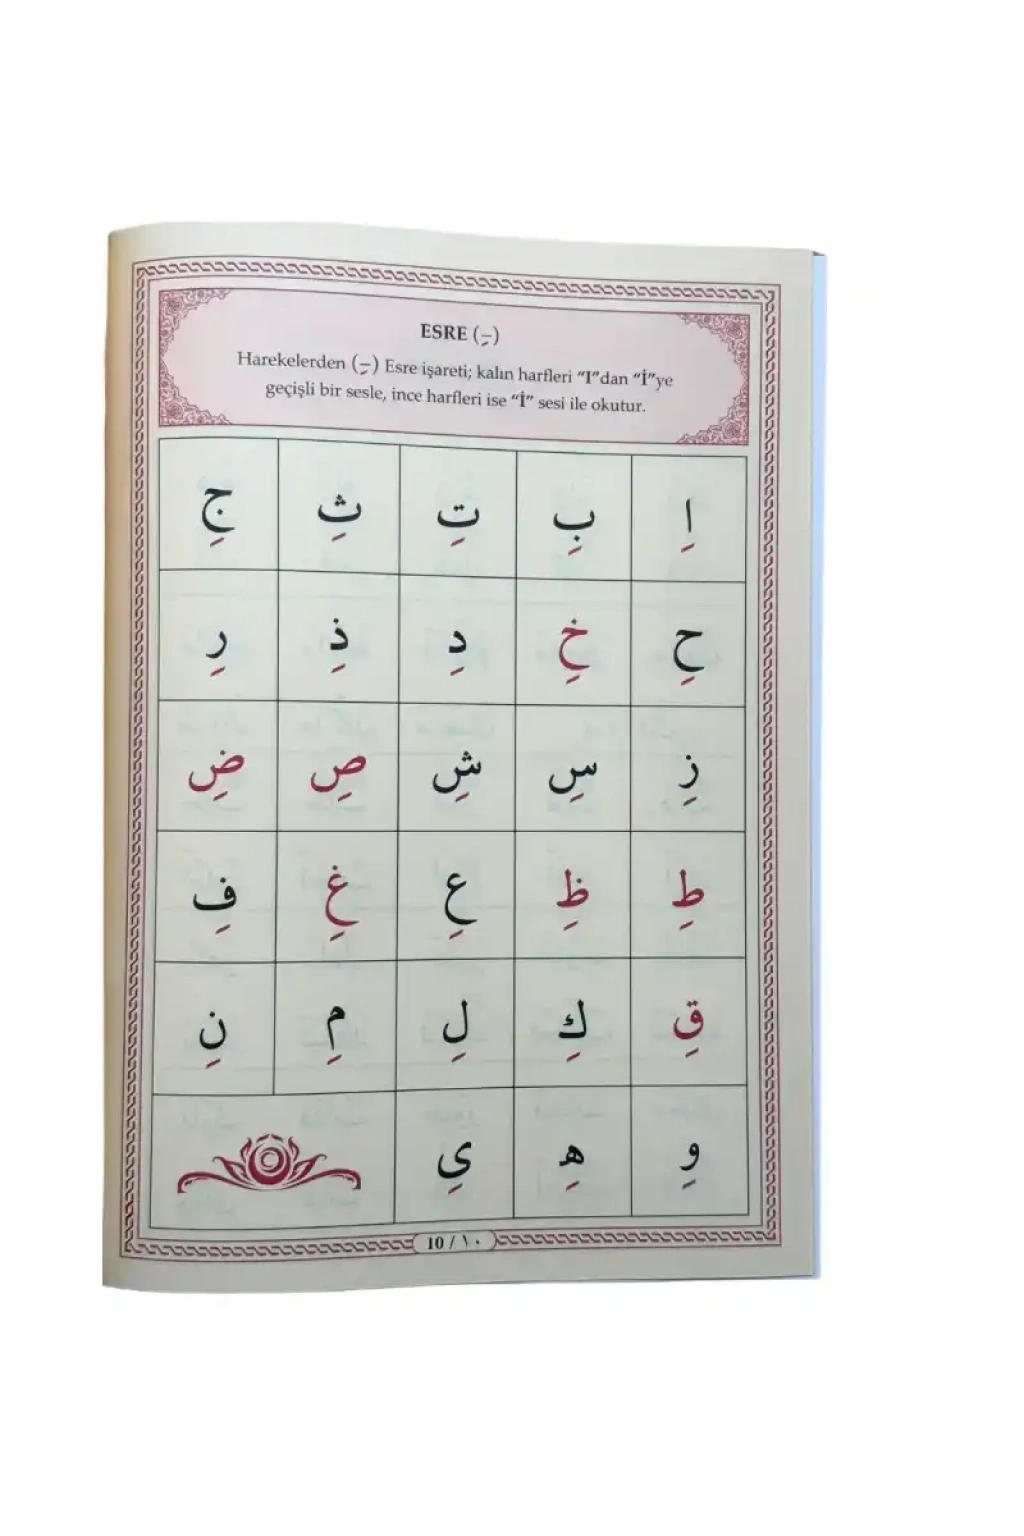 ESRE (ـِ)
Harekelerden (ـِ) Esre işareti; kalın harfleri “I”dan “İ”ye
geçişli bir sesle, ince harfleri ise “İ” sesi ile okutur.
اِ بِ تِ ثِ جِ
حِ خِ دِ ذِ رِ
زِ سِ شِ صِ ضِ
طِ ظِ عِ غِ فِ
قِ كِ لِ مِ نِ
وِ هِ يِ
10 / ١٠